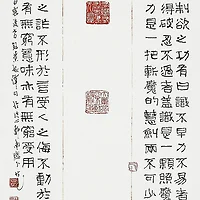 制欲之功有曰識不早力不易者
得破忍不過者蓋識是一顆照魔
力是一把斬魔的慧劍兩不可少
之詐不形於言受人之侮不動於
有無窮意味亦有無窮受用